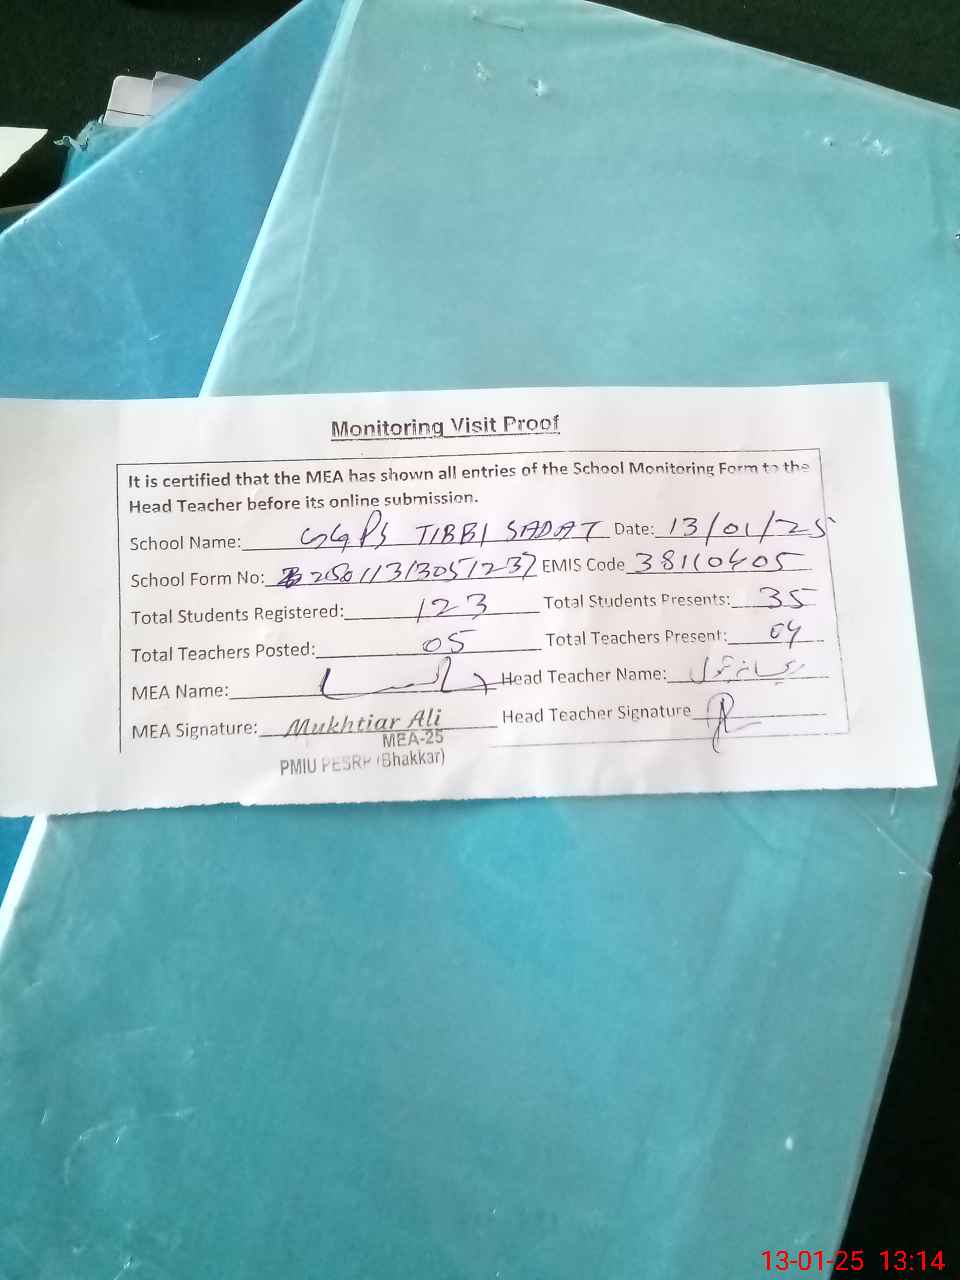 Monitoring Visit Proof
It is certified that the MEA has shown all entries of the School Monitoring Form to the
Head Teacher before its online submission.
School Name: GGPS TIBBI SADAT Date: 13/01/25
School Form No: EMIS Code 38110405
Total Students Registered: 123 Total Students Presents: 35
Total Teachers Posted: 05 Total Teachers Present: 04
MEA Name: Head Teacher Name:
MEA Signature: Mukhtiar Ali Head Teacher Signature
MEA-25
PMIU PESRP (Bhakkar)
13-01-25 13:14